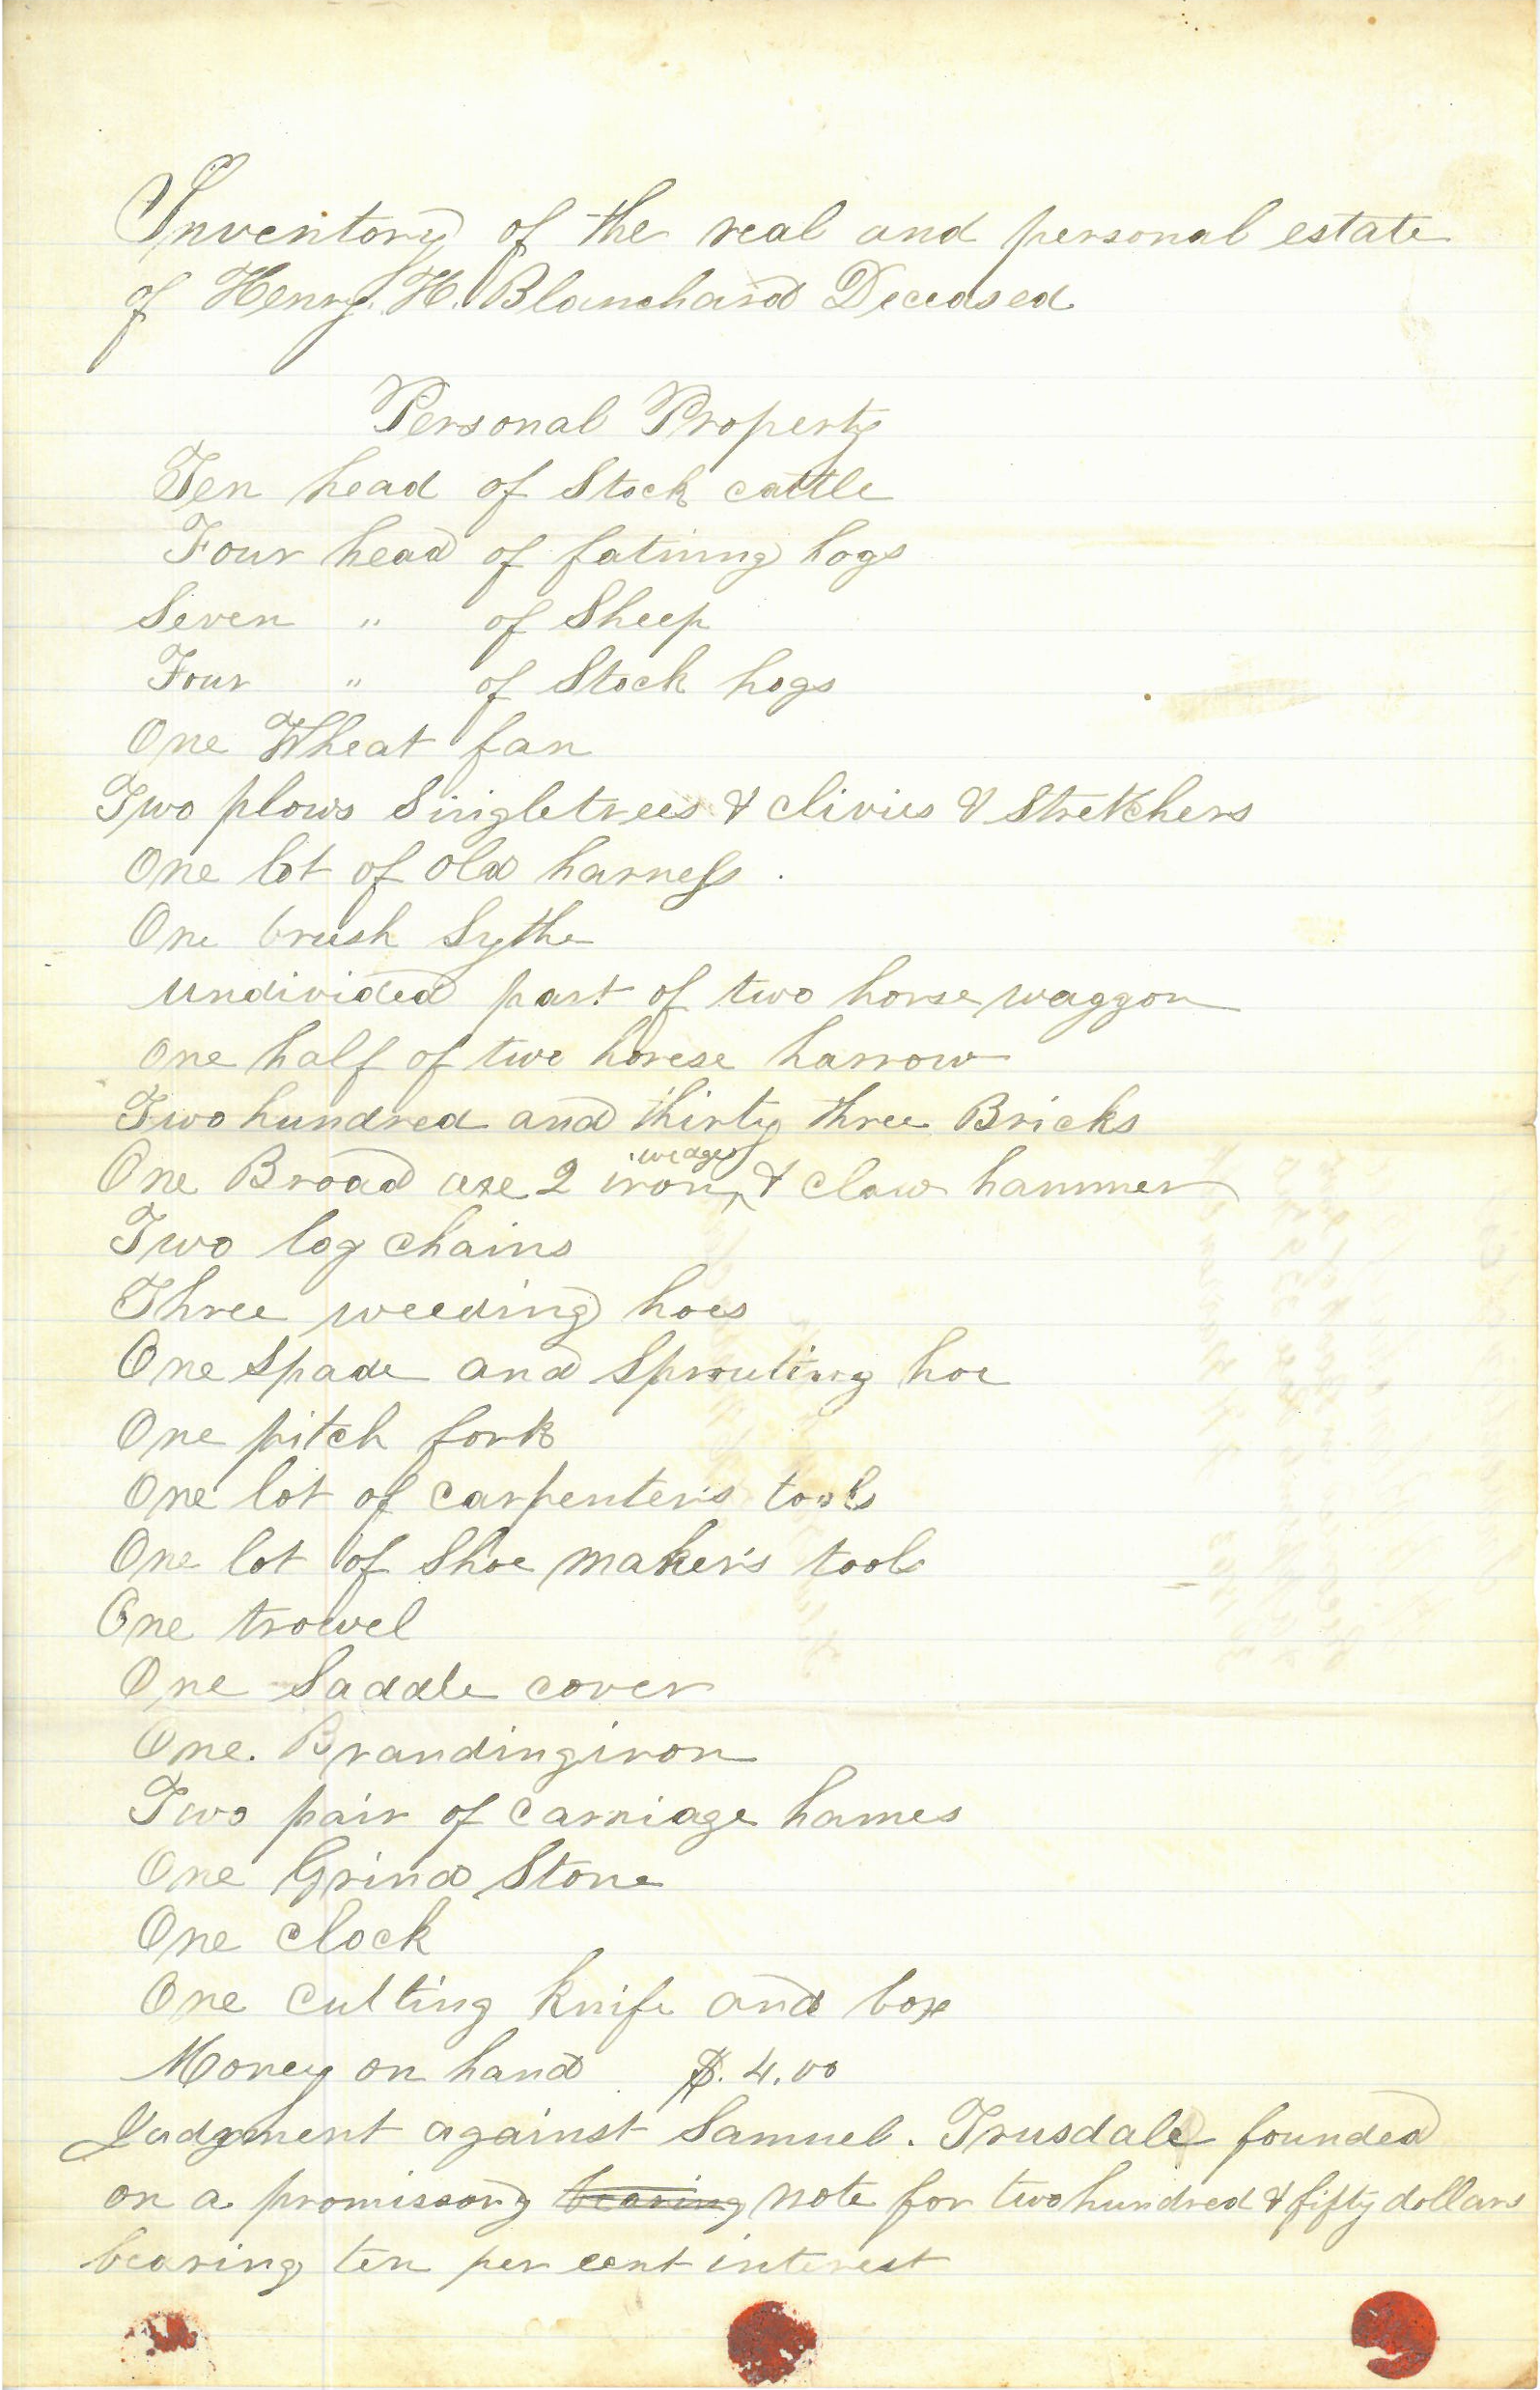 Inventory of the real and personal estate
of Henry. H. Blanchard Deceased
Personal Property
Ten head of Stock cattle
Four head of fatning hogs
Seven " of Sheep
Four " of Stock hogs
One Wheat fan
Two plows Singletrees & clivies & Stretchers
One lot of old harness.
One brush Sythe
undivided part of two horse waggon
one half of two horese harrow
Two hundred and thirty three Bricks
One Broad axe 2 iron wedges & claw hammer
Two log chains
Three weeding hoes
One Spade and Sprouting hoe
One pitch fork
One lot of carpenter's tools
One lot of Shoe maker's tools
One trowel
One Saddle cover
One. Brandingiron
Two pair of carriage hames
One Grind Stone
One clock
One cutting knife and box
Money on hand $. 4.00
Judgment against Samuel. Trusdale founded
on a promissory bearing note for two hundred & fifty dollars
bearing ten per cent interest